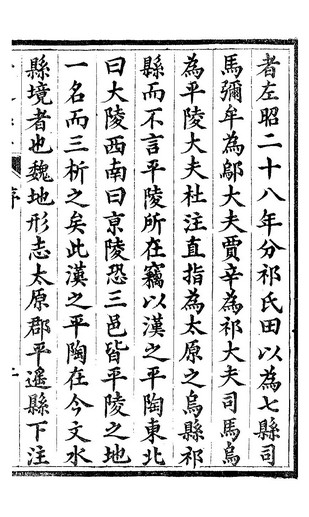 者左昭二十八年分祁氏田以為七縣司
馬彌牟為鄔大夫賈辛為祁大夫司馬烏
為平陵大夫杜注直指為太原之烏縣祁
縣而不言平陵所在竊以漢之平陶東北
曰大陵西南曰京陵恐三邑皆平陵之地
一名而三析之矣此漢之平陶在今文水
縣境者也魏地形志太原郡平遙縣下注
序